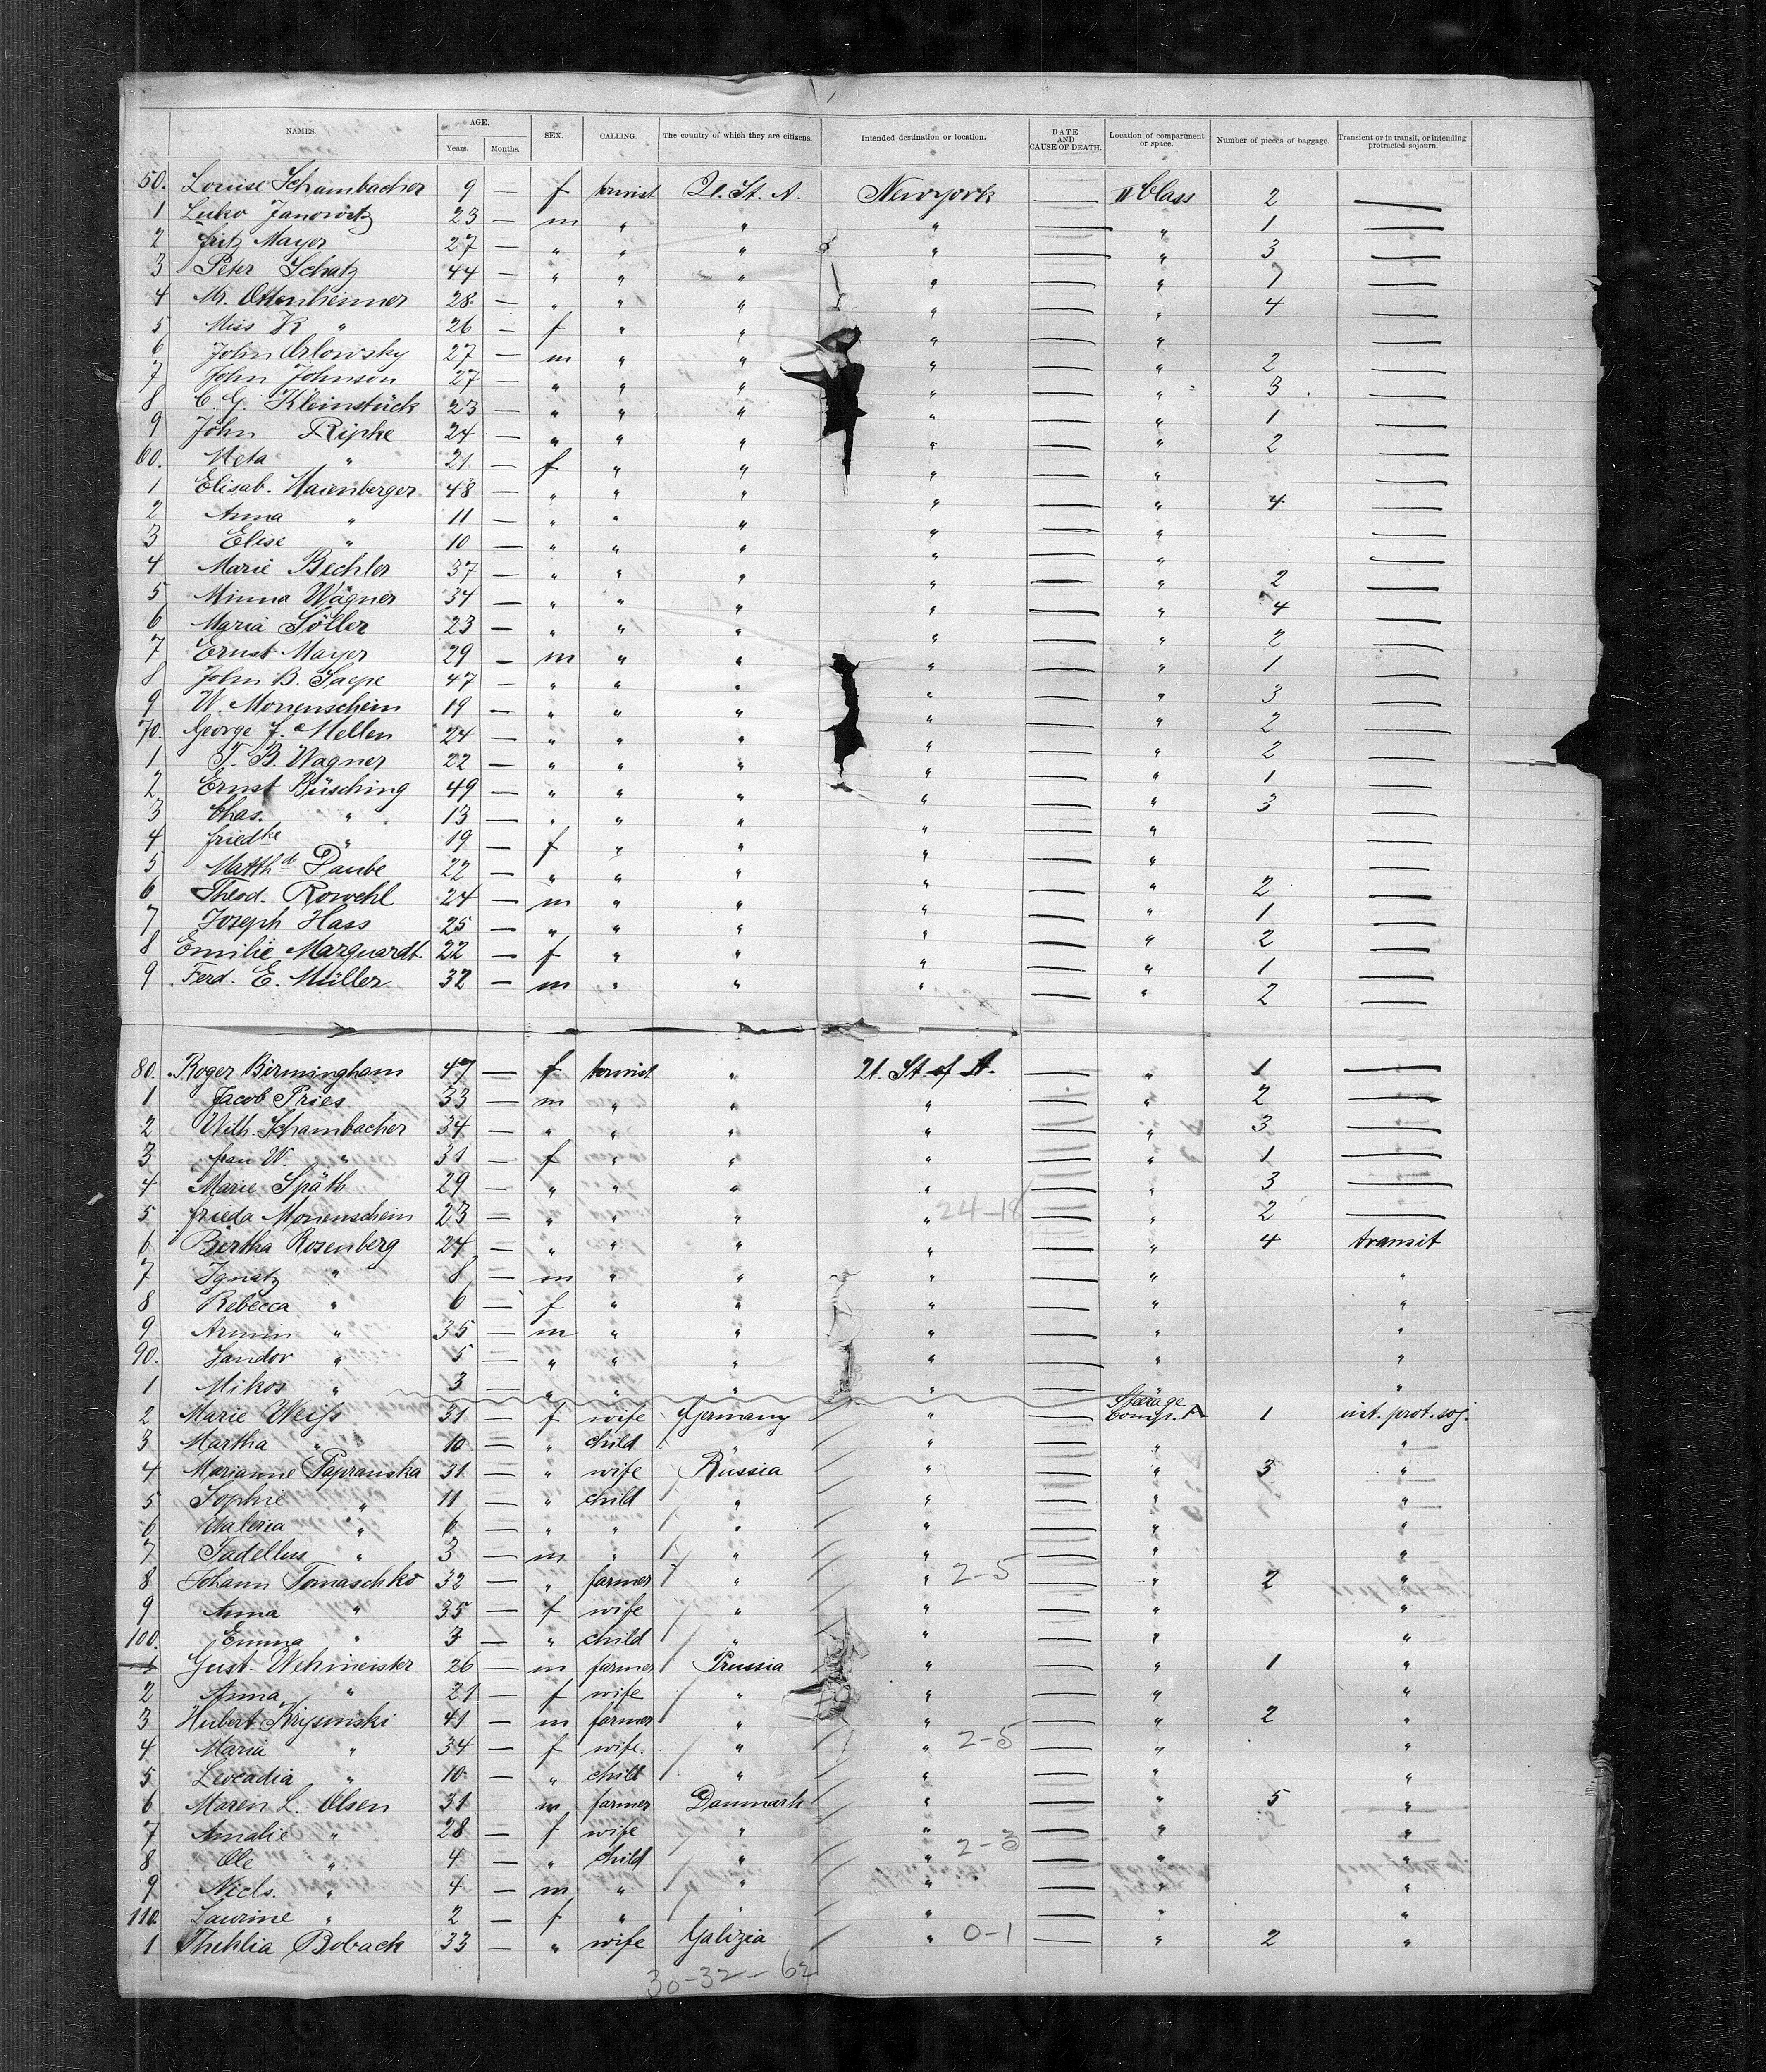 NAMES. AGE. Years. Months. SEX. CALLING. The country of which they are citizens. Intended destination or location. DATE AND CAUSE OF DEATH. Location of compartment or space. Number of pieces of baggage. Transient or in transit, or intending protracted sojourn.
50. Louise Schambacher 9 — f tourist U. St. A. Newyork — II Class 2 —
1 Janowitz 23 — m " " " — " 1 —
2 Fritz Mayer 27 — " " " " — " 3 —
3 Peter Schatz 44 — " " " " — " 1 —
4 Mr. Ottenheimer 28 — " " " " — " 4 —
5 Miss K " 26 — f " " " — " —
6 John Orlowsky 27 — m " " " — " 2 —
7 John Johnson 27 — " " " " — " 3 —
8 C. G. Kleinstück 23 — " " " " — " 1 —
9 John Ripke 24 — " " " " — " 2 —
60. Meta " 21 — f " " " — " —
1 Elisab. Maienberger 48 — " " " " — " 4 —
2 Anna " 11 — " " " " — " —
3 Elise " 10 — " " " " — " —
4 Marie Bechler 37 — " " " " — " 2 —
5 Minna Wagner 34 — " " " " — " 4 —
6 Maria Söller 23 — " " " " — " 2 —
7 Ernst Mayer 29 — m " " " — " 1 —
8 John B. Saepe 47 — " " " " — " 3 —
9 W. Monenschein 19 — " " " " — " 2 —
70. George F. Mellen 24 — " " " " — " 2 —
1 T. B. Wagner 22 — " " " " — " 1 —
2 Ernst Büsching 49 — " " " " — " 3 —
3 Chas. " 13 — " " " " — " —
4 Friedke " 19 — f " " " — " —
5 Matthde Daube 22 — " " " " — " 2 —
6 Theod. Rowehl 24 — m " " " — " 1 —
7 Joseph Hass 25 — " " " " — " 2 —
8 Emilie Marquardt 22 — f " " " — " 1 —
9 Ferd. E. Müller 32 — m " " " — " 2 —
80. Roger Birmingham 47 — f tourist " U. St. of A. — " 1 —
1 Jacob Pries 33 — m " " " — " 2 —
2 Wilh. Schambacher 34 — " " " " — " 3 —
3 Frau W. " 31 — f " " " — " 1 —
4 Marie Späth 29 — " " " " — " 3 —
5 Frieda Monenschein 23 — " " " " 24-18 — " 2 —
6 Bertha Rosenberg 24 — " " " " — " 4 transit
7 Ignatz " 8 — m " " " — " "
8 Rebecca " 6 — f " " " — " "
9 Armin " 35 — m " " " — " "
90. Sandor " 5 — " " " " — " "
1 Mikos " 3 — " " " " — "
2 Marie Weiss 31 — f wife Germany " — Steerage Comp. A 1 int. prot. soj.
3 Martha " 10 — " child " " — " "
4 Marianne Papranska 31 — " wife Russia " — " 3 "
5 Sophie " 11 — " child " " — " "
6 Valeria " 6 — " " " " — " "
7 Tadellus " 3 — m " " " — " "
8 Johann Tomaschko 32 — " farmer " " 2-5 — " 2 "
9 Anna " 35 — f wife " " — " "
100. Emma " 3 — " child " " — " "
1 Gust. Wehmeister 26 — m farmer Prussia " — " 1 "
2 Anna " 21 — f wife " " — " "
3 Hubert Krysinski 41 — m farmer " " — " 2 "
4 Maria " 34 — f wife. " " 2-5 — " "
5 Leocadia " 10 — " child " " — " "
6 Maren L. Olsen 31 — m farmer Danmark " — " 5 "
7 Amalie " 28 — f wife " " — " "
8 Ole " 4 — " child " " 2-3 — " "
9 Niels. " 4 — m " " " — " "
110. Laurine " 2 — f " " " — " "
1 Thehlia Boback 33 — " wife Galizia " 0-1 — " 2 "
30-32-62